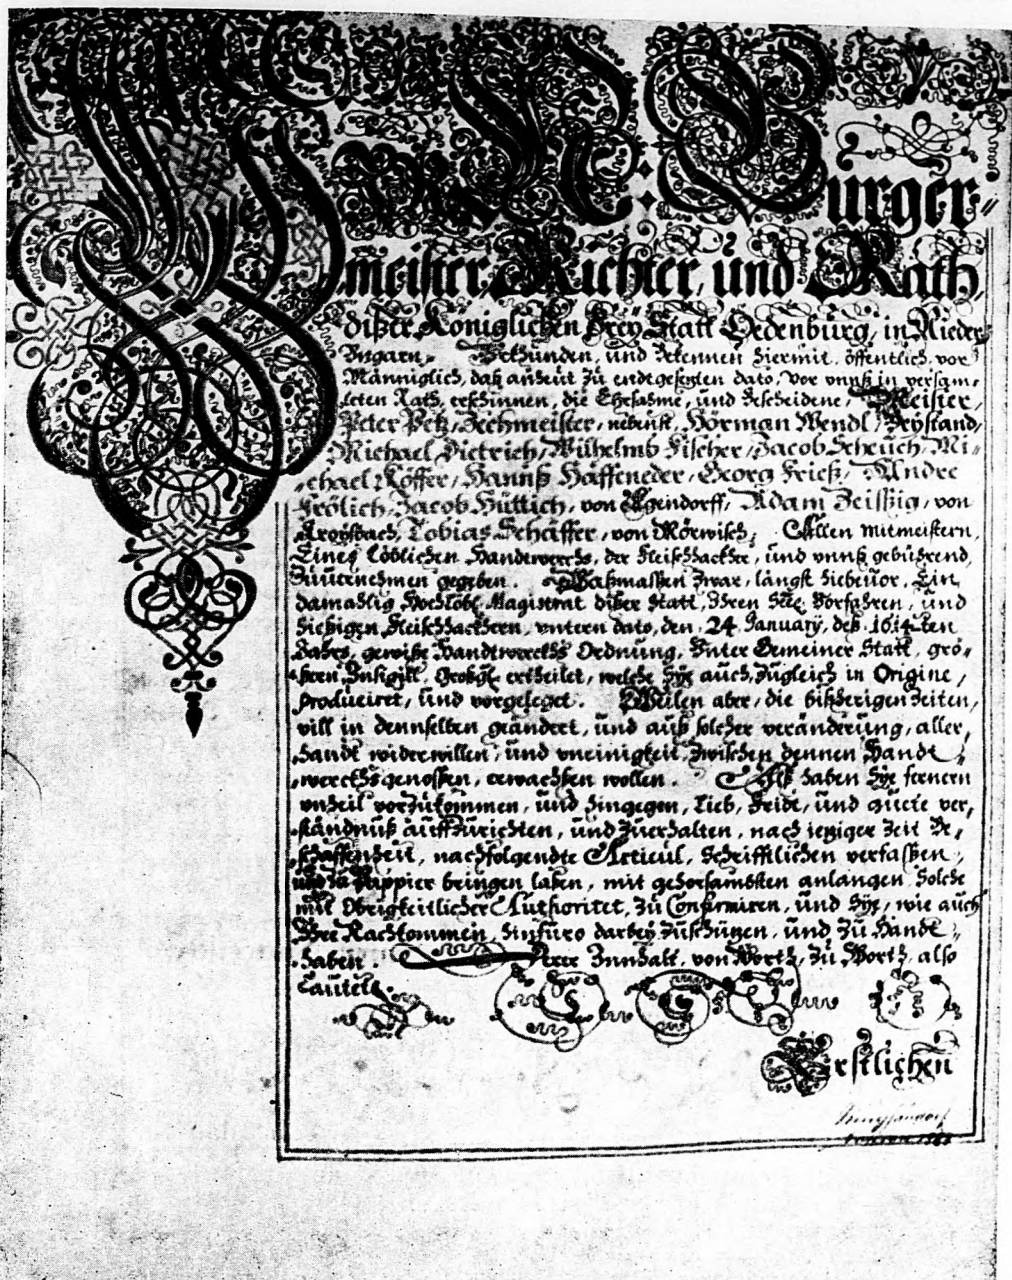 Wir N: N: Bürger-
meister, Richter, und Rath,
dißer Königlichen Frey Statt Oedenburg, in Nieder
Ungarn. Uhrkunden, und Bekennen hiermit, öffentlich, vor
Männiglich, daß anheüt zu endtgesezten dato, vor unnß in versam-
leten Rath, erschinnen, die Ehrsahme, und Bescheidene, Meister,
Peter Petz, Zechmeister, nebenst, Hörman Wendl, Beystand,
Michael Dietrich, Wilhelmb Fischer, Jacob Scheüch, Mi-
chael Köffer, Hannß Häffeneder, Georg Frieß, Andre
Frölich, Jacob Hüttich, von Agendorff, Adam Zeißig, von
Kroyspach, Tobias Schäffer, von Mörwisch, Allen mitmeistern,
Eines Löblichen Handtwerchs, der Fleischhackher, und unnß gebührend,
Zuuernehmen gegeben. Waßmassen zwar, längst hiebeuor, Ein
damahlig Hochlöbl. Magistrat dißer Statt, Ihren Seel. Vorfahren, und
hießigen Fleischhackhern, untern dato, den, 24. January, deß 1614.ten
Jahrs, gewiße Handtwerchs Ordnung, Unter Gemeiner Statt, grö-
ßern Insigill, ertheilet, welche Sye auch zugleich in Origine,
produciret, und vorgeleget. Weilen aber, die bißherigen Zeiten,
vill in dennselben geändert, und auß solcher veränderung, aller,
handt widerwillen, und uneinigkeit, zwischen dennen Handt-
werchsgenoßen, erwachßen wollen. Alß haben Sye fernern
unheil vorzukommen, und hingegen, Lieb, Fride, und guete ver-
ständnüß auffzurichten, und zuerhalten, nach ieziger Zeit Be-
schaffenheit, nachfolgendte Articul, Schrifftlichen verfaßen,
und zu Pappier bringen laßen, mit gehorsambsten anlangen, Solche
mit Obrigkeitlicher Authoritet, zu Confirmiren, und Sye, wie auch
Ihre Nachkommen, hinfüro darbey zuschüzen, und zu Handt-
haben. Derer Innhalt, von Worth, zu Worth, also
Lautet.
Erstlichen